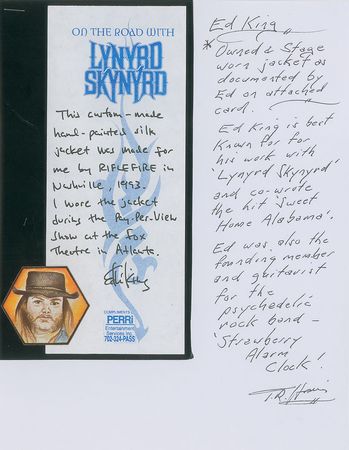 ON THE ROAD WITH
LYNYRD
SKYNYRD
This custom-made
hand-painted silk
jacket was made for
me by RIFLEFIRE in
Nashville, 1993.
I wore the jacket
during the Pay-Per-View
show at the Fox
Theatre in Atlanta.
Ed King
COMPLIMENTS
PERRi
Entertainment
Services Inc.
702-324-PASS
Ed King
* Owned & Stage
worn jacket as
documented by
Ed on attached
card.
Ed King is best
known for for
his work with
'Lynyrd Skynyrd'
and co-wrote
the hit 'Sweet
Home Alabama'.
Ed was also the
founding member
and guitarist
for the
psychedelic
rock band -
'Strawberry
Alarm
Clock!